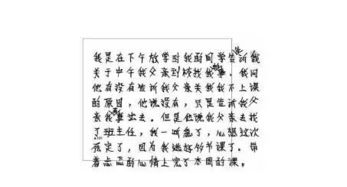 我是在下午放学时我的同学告诉我
关于中午我父亲到学校找我事。我问
他有没有告诉我父亲关我不上课
的原因，他说没有，只是告诉我父
亲我出去。但是他说我父亲去找
了班主任，我一听急了，心想这次
完定了，因为我逃好节课了。带
着忐忑的心情上完了本周的课。